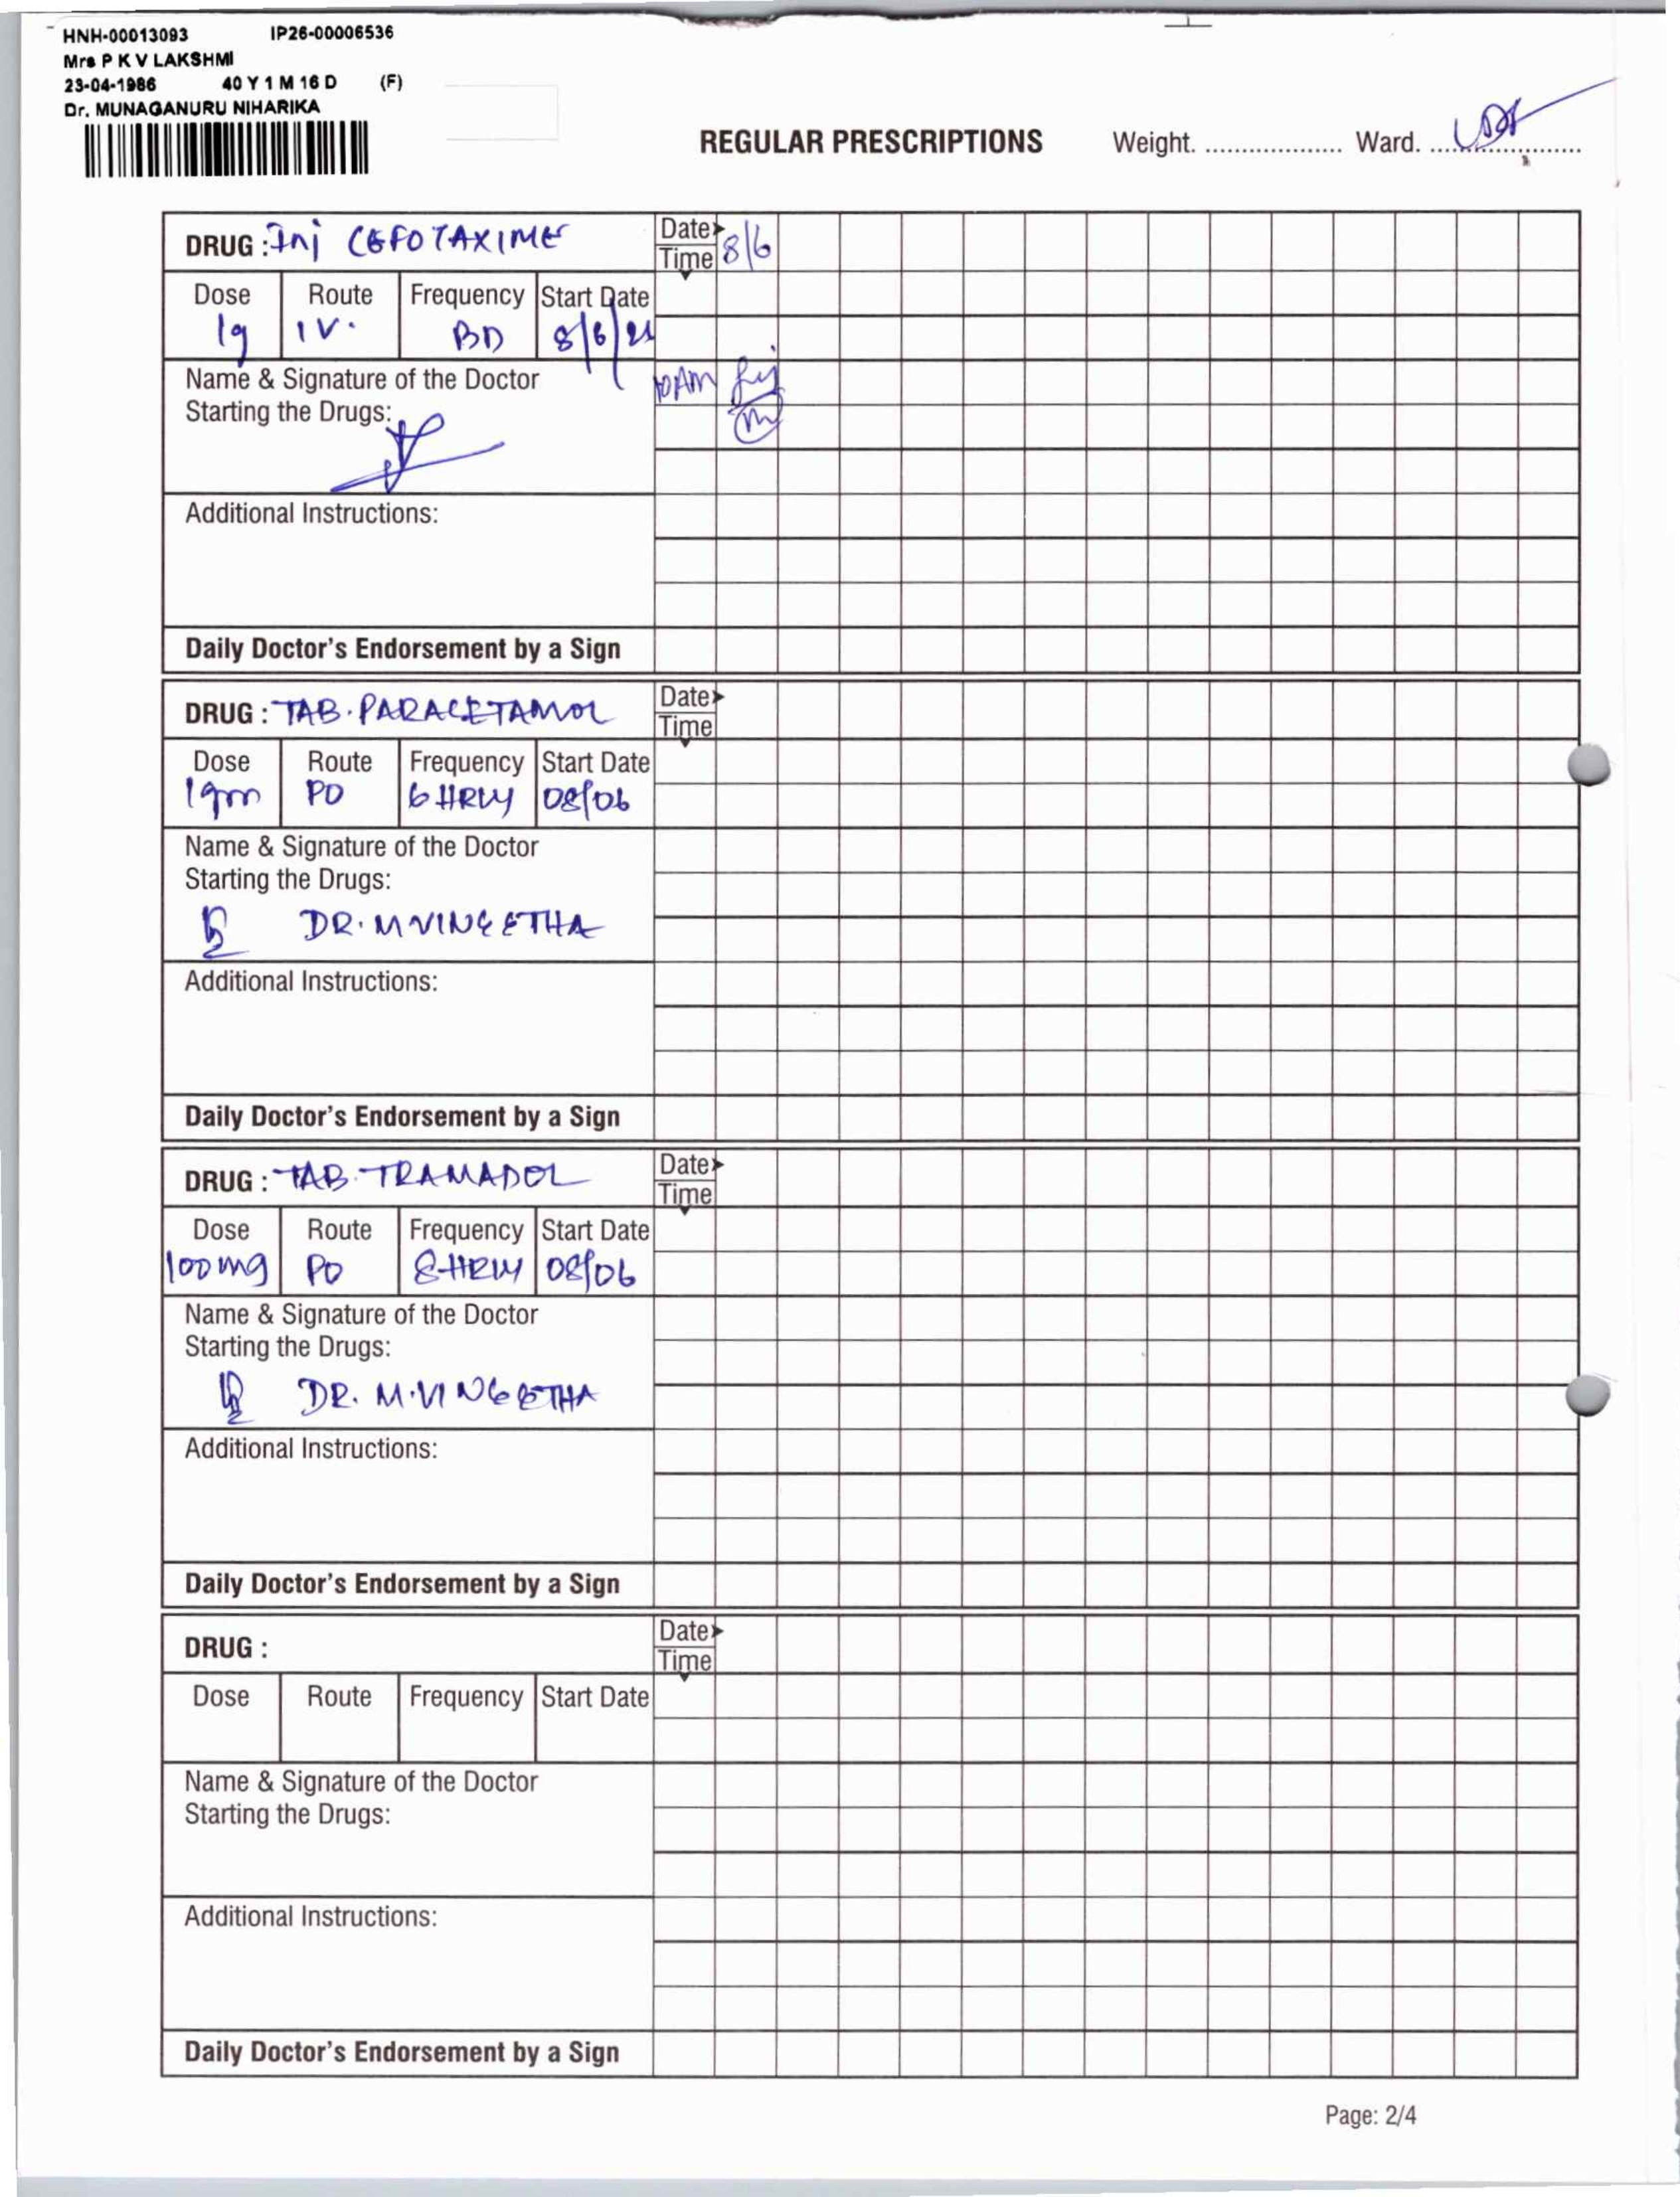 HNH-00013093 IP26-00006536
Mrs P K V LAKSHMI
23-04-1986 40 Y 1 M 16 D (F)
Dr. MUNAGANURU NIHARIKA
REGULAR PRESCRIPTIONS Weight. .................. Ward. ..................
DRUG : Inj CEFOTAXIME Date 8/6
Time
Dose Route Frequency Start Date
1g IV. BD 8/6/
Name & Signature of the Doctor
10AM
Starting the Drugs:
Additional Instructions:
Daily Doctor's Endorsement by a Sign
DRUG : TAB. PARACETAMOL Date
Time
Dose Route Frequency Start Date
1gm PO 6 HRLY 08/06
Name & Signature of the Doctor
Starting the Drugs:
DR. M VINEETHA
Additional Instructions:
Daily Doctor's Endorsement by a Sign
DRUG : TAB. TRAMADOL Date
Time
Dose Route Frequency Start Date
100mg PO 8 HRLY 08/06
Name & Signature of the Doctor
Starting the Drugs:
DR. M. VINEETHA
Additional Instructions:
Daily Doctor's Endorsement by a Sign
DRUG : Date
Time
Dose Route Frequency Start Date
Name & Signature of the Doctor
Starting the Drugs:
Additional Instructions:
Daily Doctor's Endorsement by a Sign
Page: 2/4